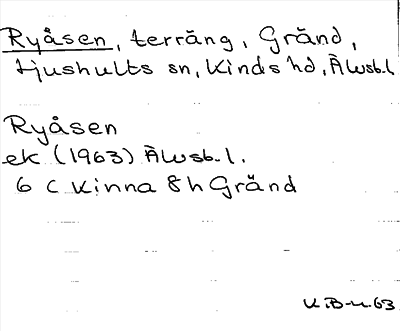 Ryåsen, terräng, Gränd,
Ljushults sn, Kinds hd, Älvsb. l
Ryåsen
ek (1963) Älvsb. l.
6 C Kinna 8 h Gränd
K.B-n.63